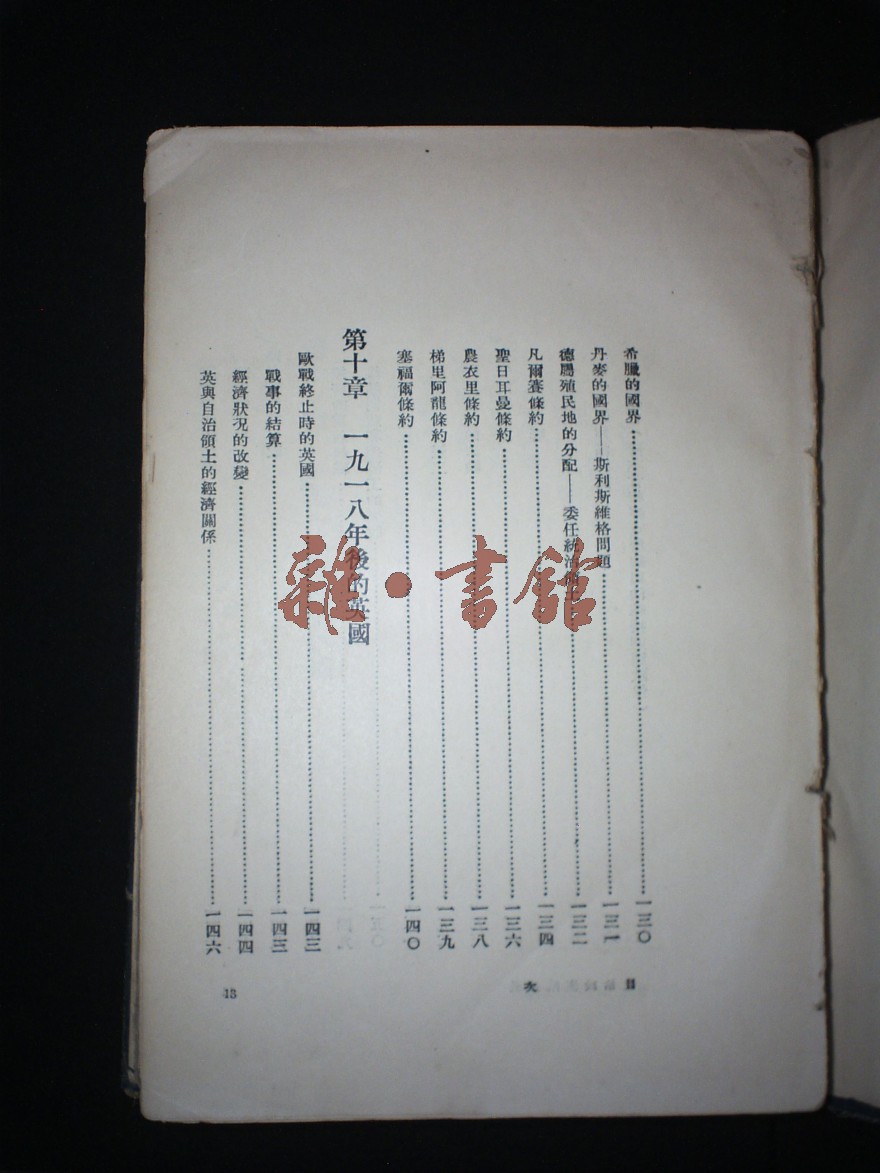 希臘的國界……一三〇
丹麥的國界——斯利斯維格問題……一三一
德屬殖民地的分配——委任統治……一三二
凡爾賽條約……一三四
聖日耳曼條約……一三六
農衣里條約……一三八
梯里阿龍條約……一三九
塞福爾條約……一四〇
第十章 一九一八年後的英國
歐戰終止時的英國……一四三
戰事的結算……一四三
經濟狀况的改變……一四四
英與自治領土的經濟關係……一四六
目次
13
雜·書館